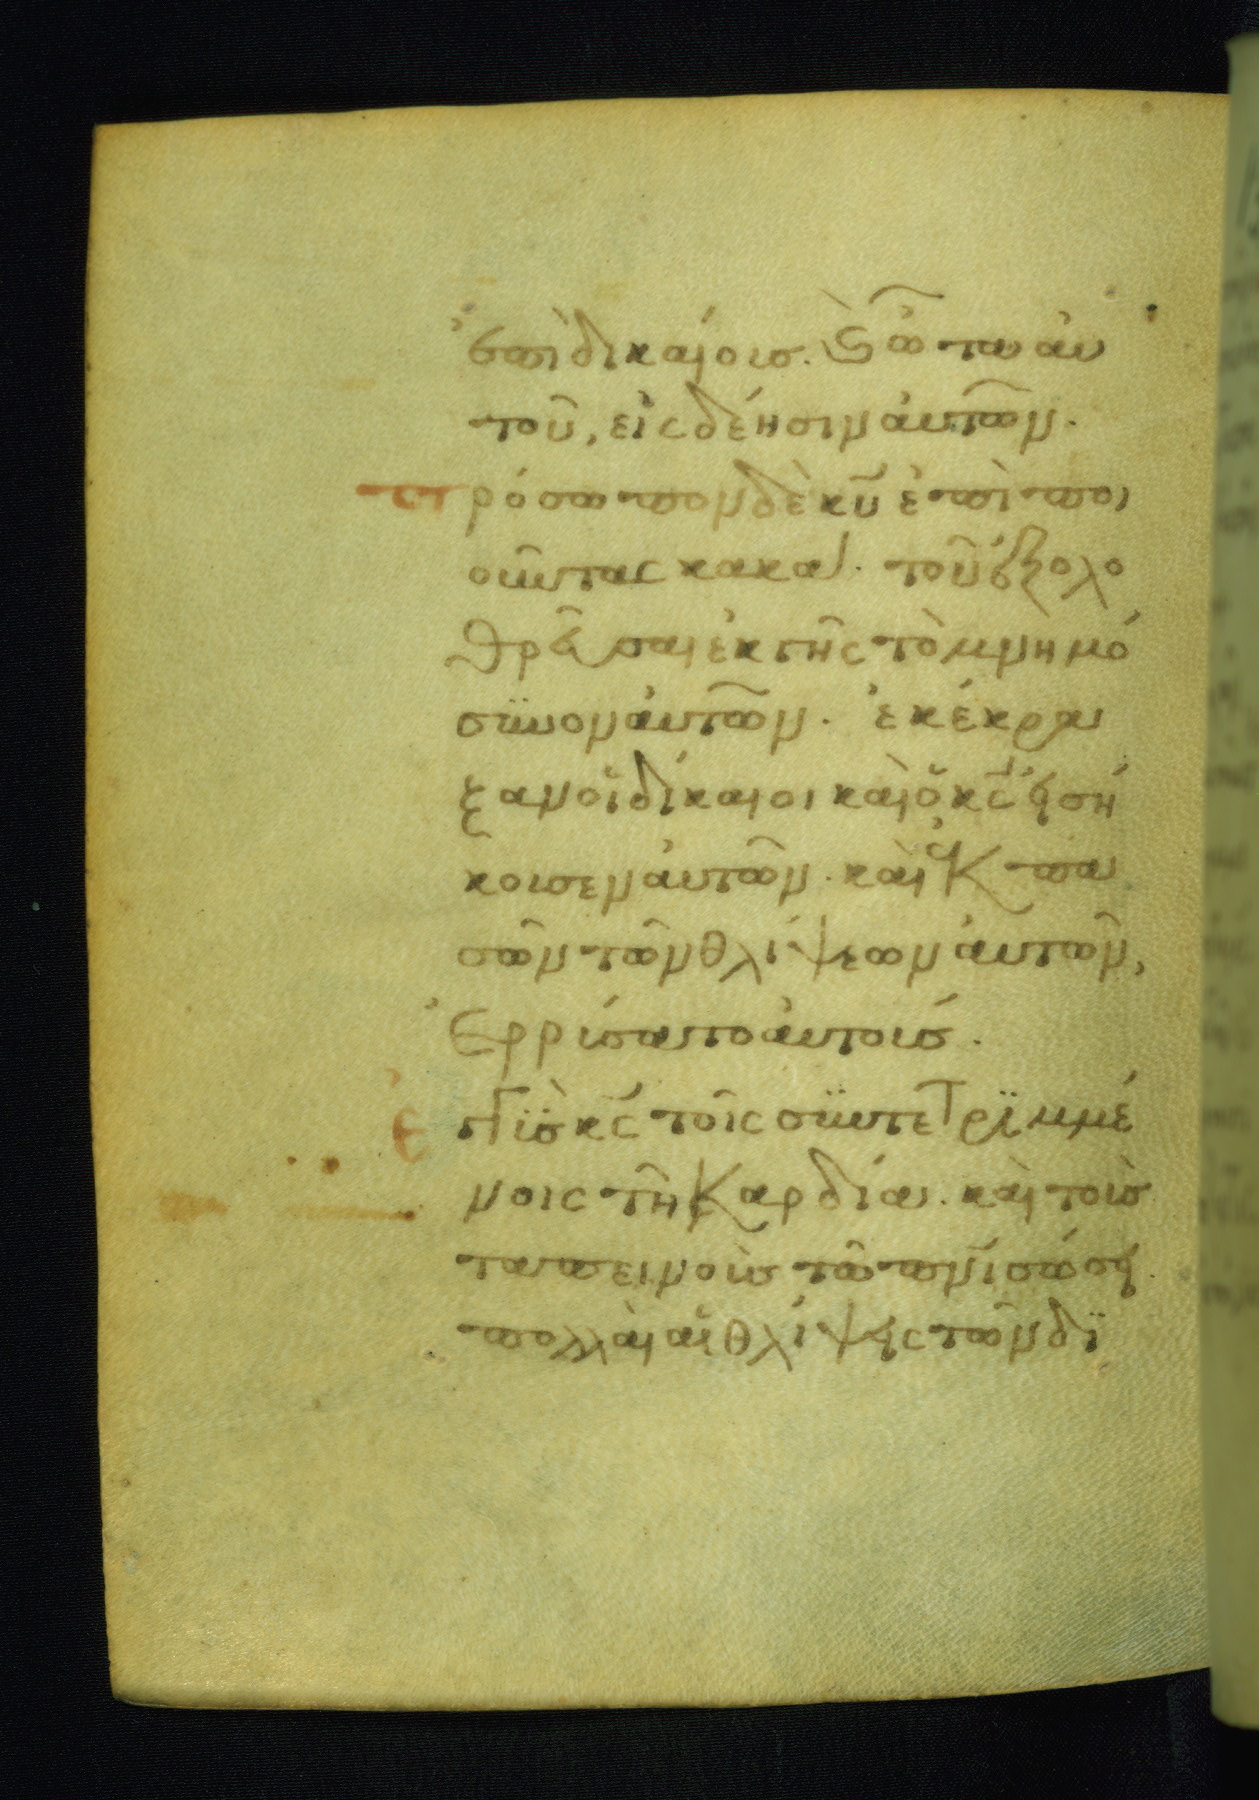 ἐπὶ δικαίοις. καὶ ὦτα αὐ
τοῦ, εἰς δέησιν αὐτῶν.
πρόσωπον δὲ κυ ἐπὶ ποι
οῦντας κακά. τοῦ ἐξολο
θρεῦσαι ἐκ γῆς τὸ μνημό
συνον αὐτῶν. ἐκέκρα
ξαν οἱ δίκαιοι καὶ ὁ κς εἰσή
κουσεν αὐτῶν. καὶ ἐκ πα
σῶν τῶν θλίψεων αὐτῶν,
ἐρρύσατο αὐτούς.
ἐγγὺς κς τοῖς συντετριμμέ
νοις τὴν καρδίαν. καὶ τοὺς
ταπεινοὺς τῶ πνι σώσει.
πολλαὶ αἱ θλίψεις τῶν δι